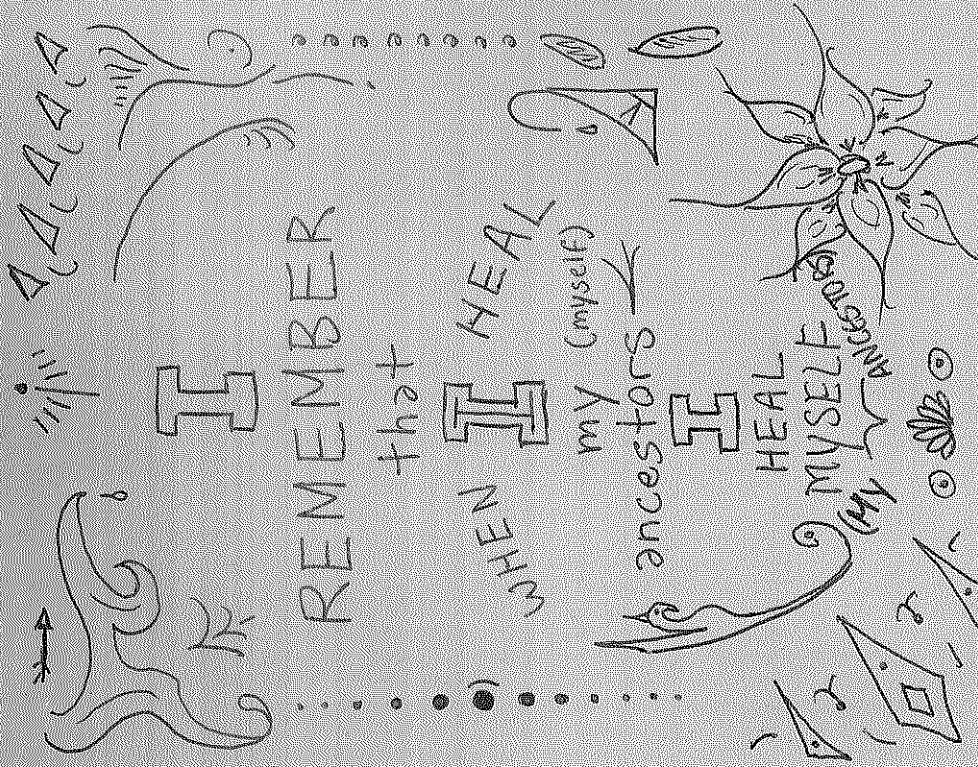 I
REMEMBER
that
WHEN I HEAL
my (myself)
ancestors
I
HEAL
MYSELF
(MY ANCESTORS)